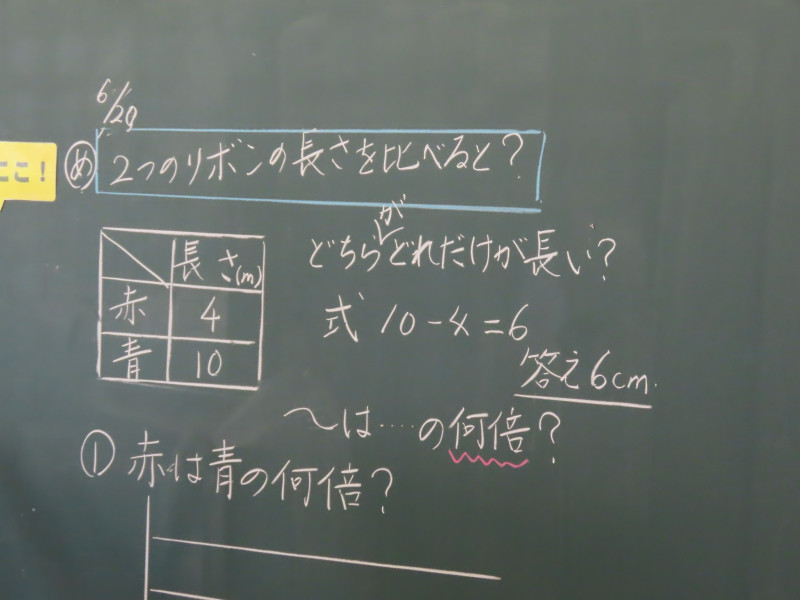 6/29
ここ!
め 2つのリボンの長さを比べると?
長さ(m)
赤 4
青 10
どちらがどれだけが長い?
式 10-4=6
答え6cm.
〜は····の何倍?
① 赤は青の何倍?